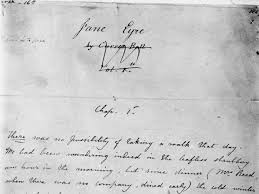 Jane Eyre
by Currer Bell
Vol. 1st
Chap. 1st
There was no possibility of taking a walk that day.
We had been wandering indeed in the leafless shrubbery
an hour in the morning, but since dinner (Mrs Reed,
when there was no company, dined early) the cold winter